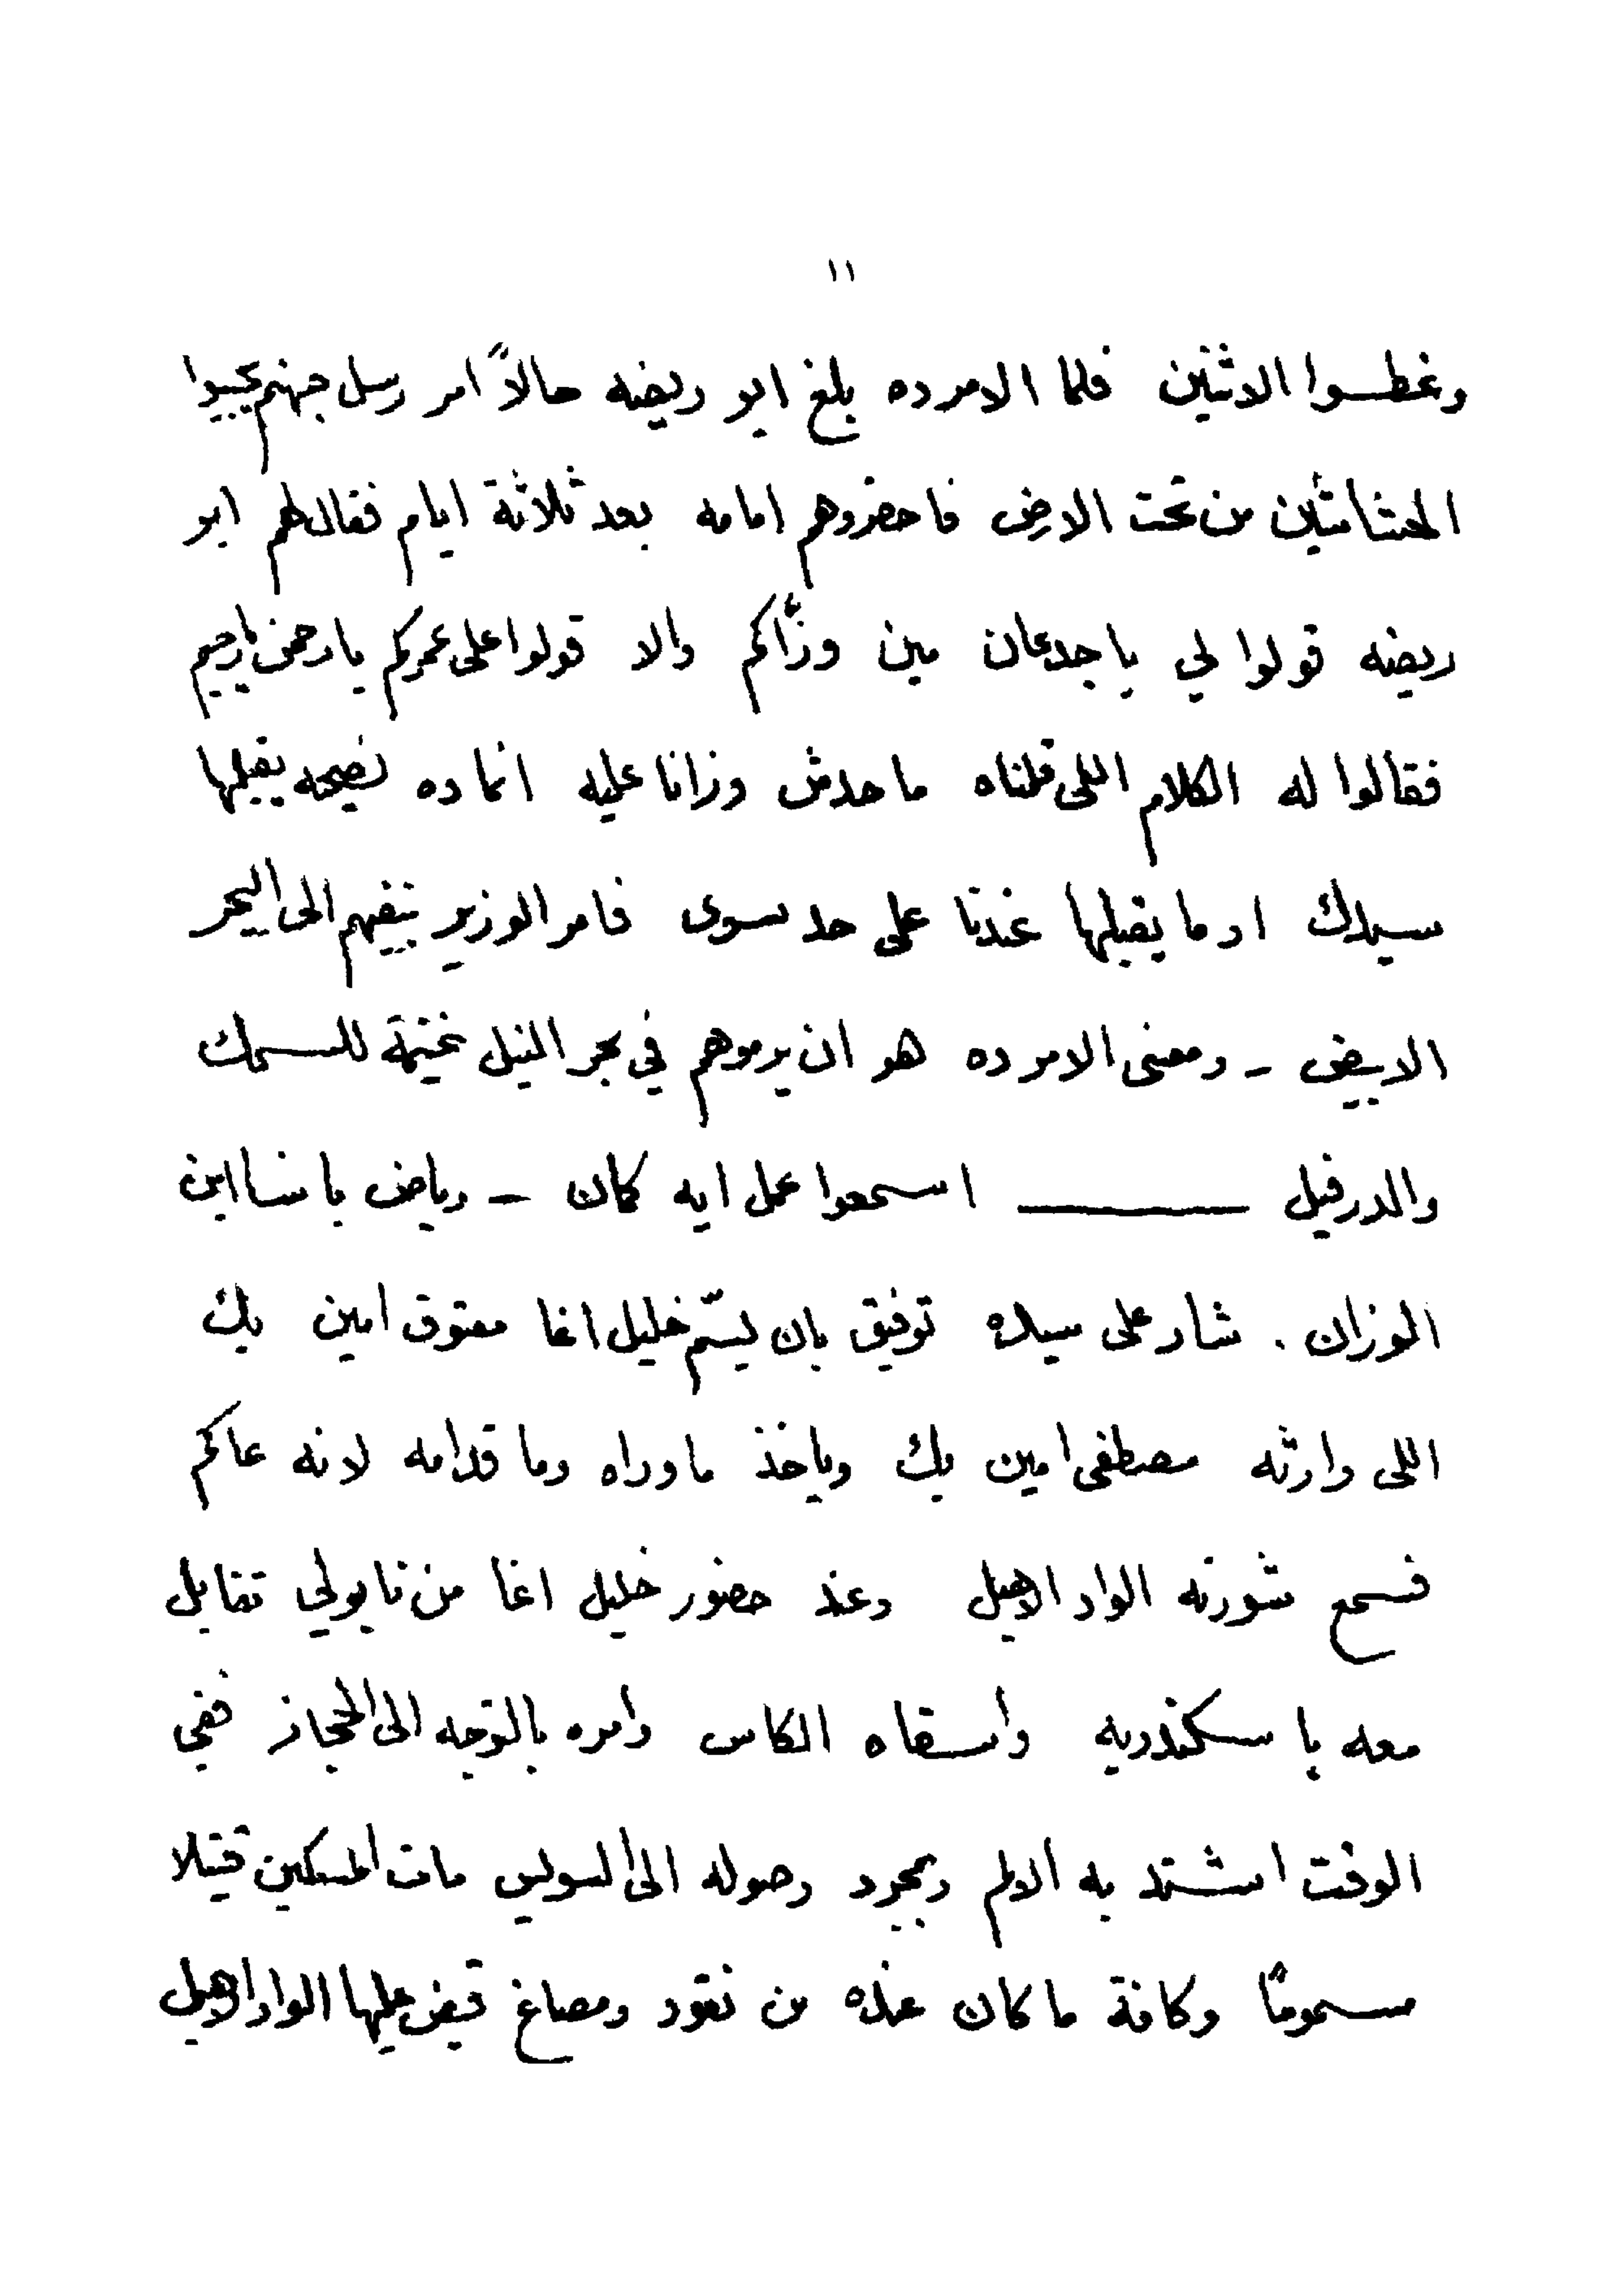 ١١
وغطسوا الاثنين فلما الامر ده بلغ ابو ريضه حالاً امر رسل جهنم يجيبوا
الحشاشين من تحت الارض فاحضروهم امامه بعد ثلاثة ايام فقال لهم ابو
ريضه قولوا لي يا جدعان مين وزّاكم والا قولوا على عمركم يا رحمن يا رحيم
فقالوا له الكلام اللى قلناه ما حدش وزانا عليه انما ده نصيحه يقبلها
سيدك او ما يقبلها عندنا على حد سوى فامر الوزير بنفيهم الى البحر
الابيض - ومعنى الامر ده هو ان يرموهم في بحر النيل غنيمة للسمك
والدرفيل ـــــــــ اسمعوا عمل ايه كمان - رياض باشا ابن
الوزان . شار على سيده توفيق بان يسّم خليل اغا معتوق امين بك
اللى وارثه مصطفى امين بك وياخذ ما وراه وما قدامه لانه عاكم
فسمع شورته الواد الاهبل وعند حضور خليل اغا من نابولي تقابل
معه باسكندريه واسقاه الكاس وامره بالتوجه الى الحجاز ففي
الوقت اشتد به الالم وبمجرد وصوله الى السويس مات المسكين قتيلا
مسموماً وكافة ما كان عنده من نقود ومصاغ قبض عليها الواد الاهبل